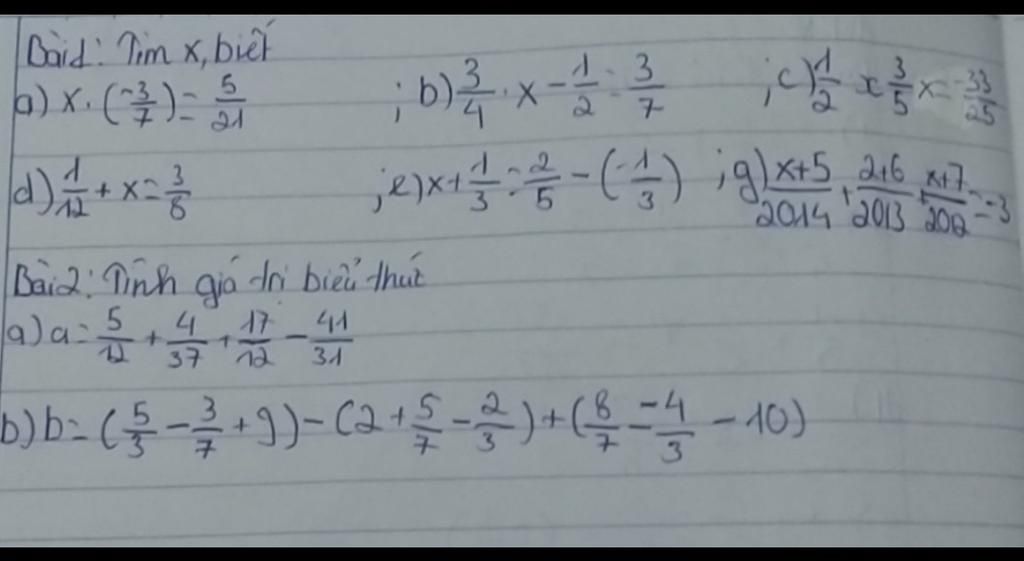 Bài1: Tìm x, biết
a) x · (-3/7) = 5/21 ; b) 3/4 · x - 1/2 = 3/7 ; c) 1/2 x 3/5 x = -33/25
d) 1/12 + x = 3/8 ; e) x + 1/3 = 2/5 - (-1/3) ; g) x+5/2014 + 2+6/2013 + x+7/2012 = -3
Bài2: Tính giá trị biểu thức
a) a = 5/12 + 4/37 + 17/12 - 41/31
b) b = (5/3 - 3/7 + 9) - (2 + 5/7 - 2/3) + (8/7 - -4/3 - 10)